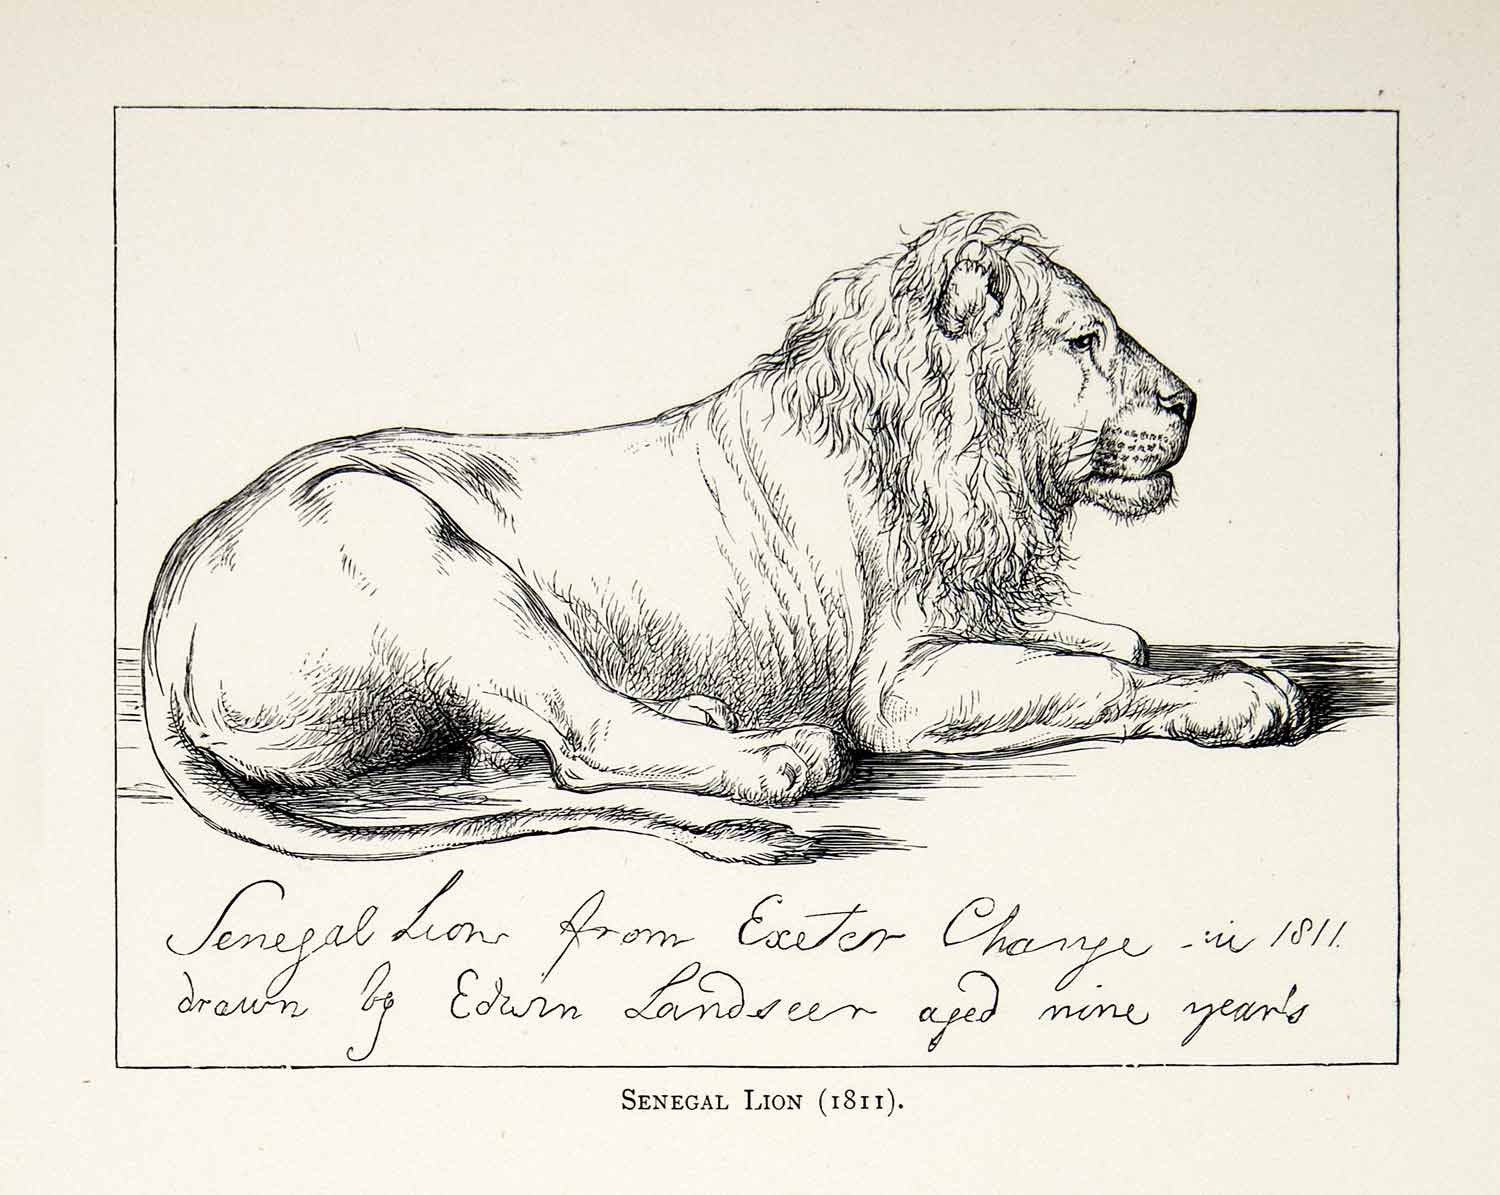 Senegal Lion from Exeter Change in 1811.
drawn by Edwin Landseer aged nine year's
SENEGAL LION (1811).